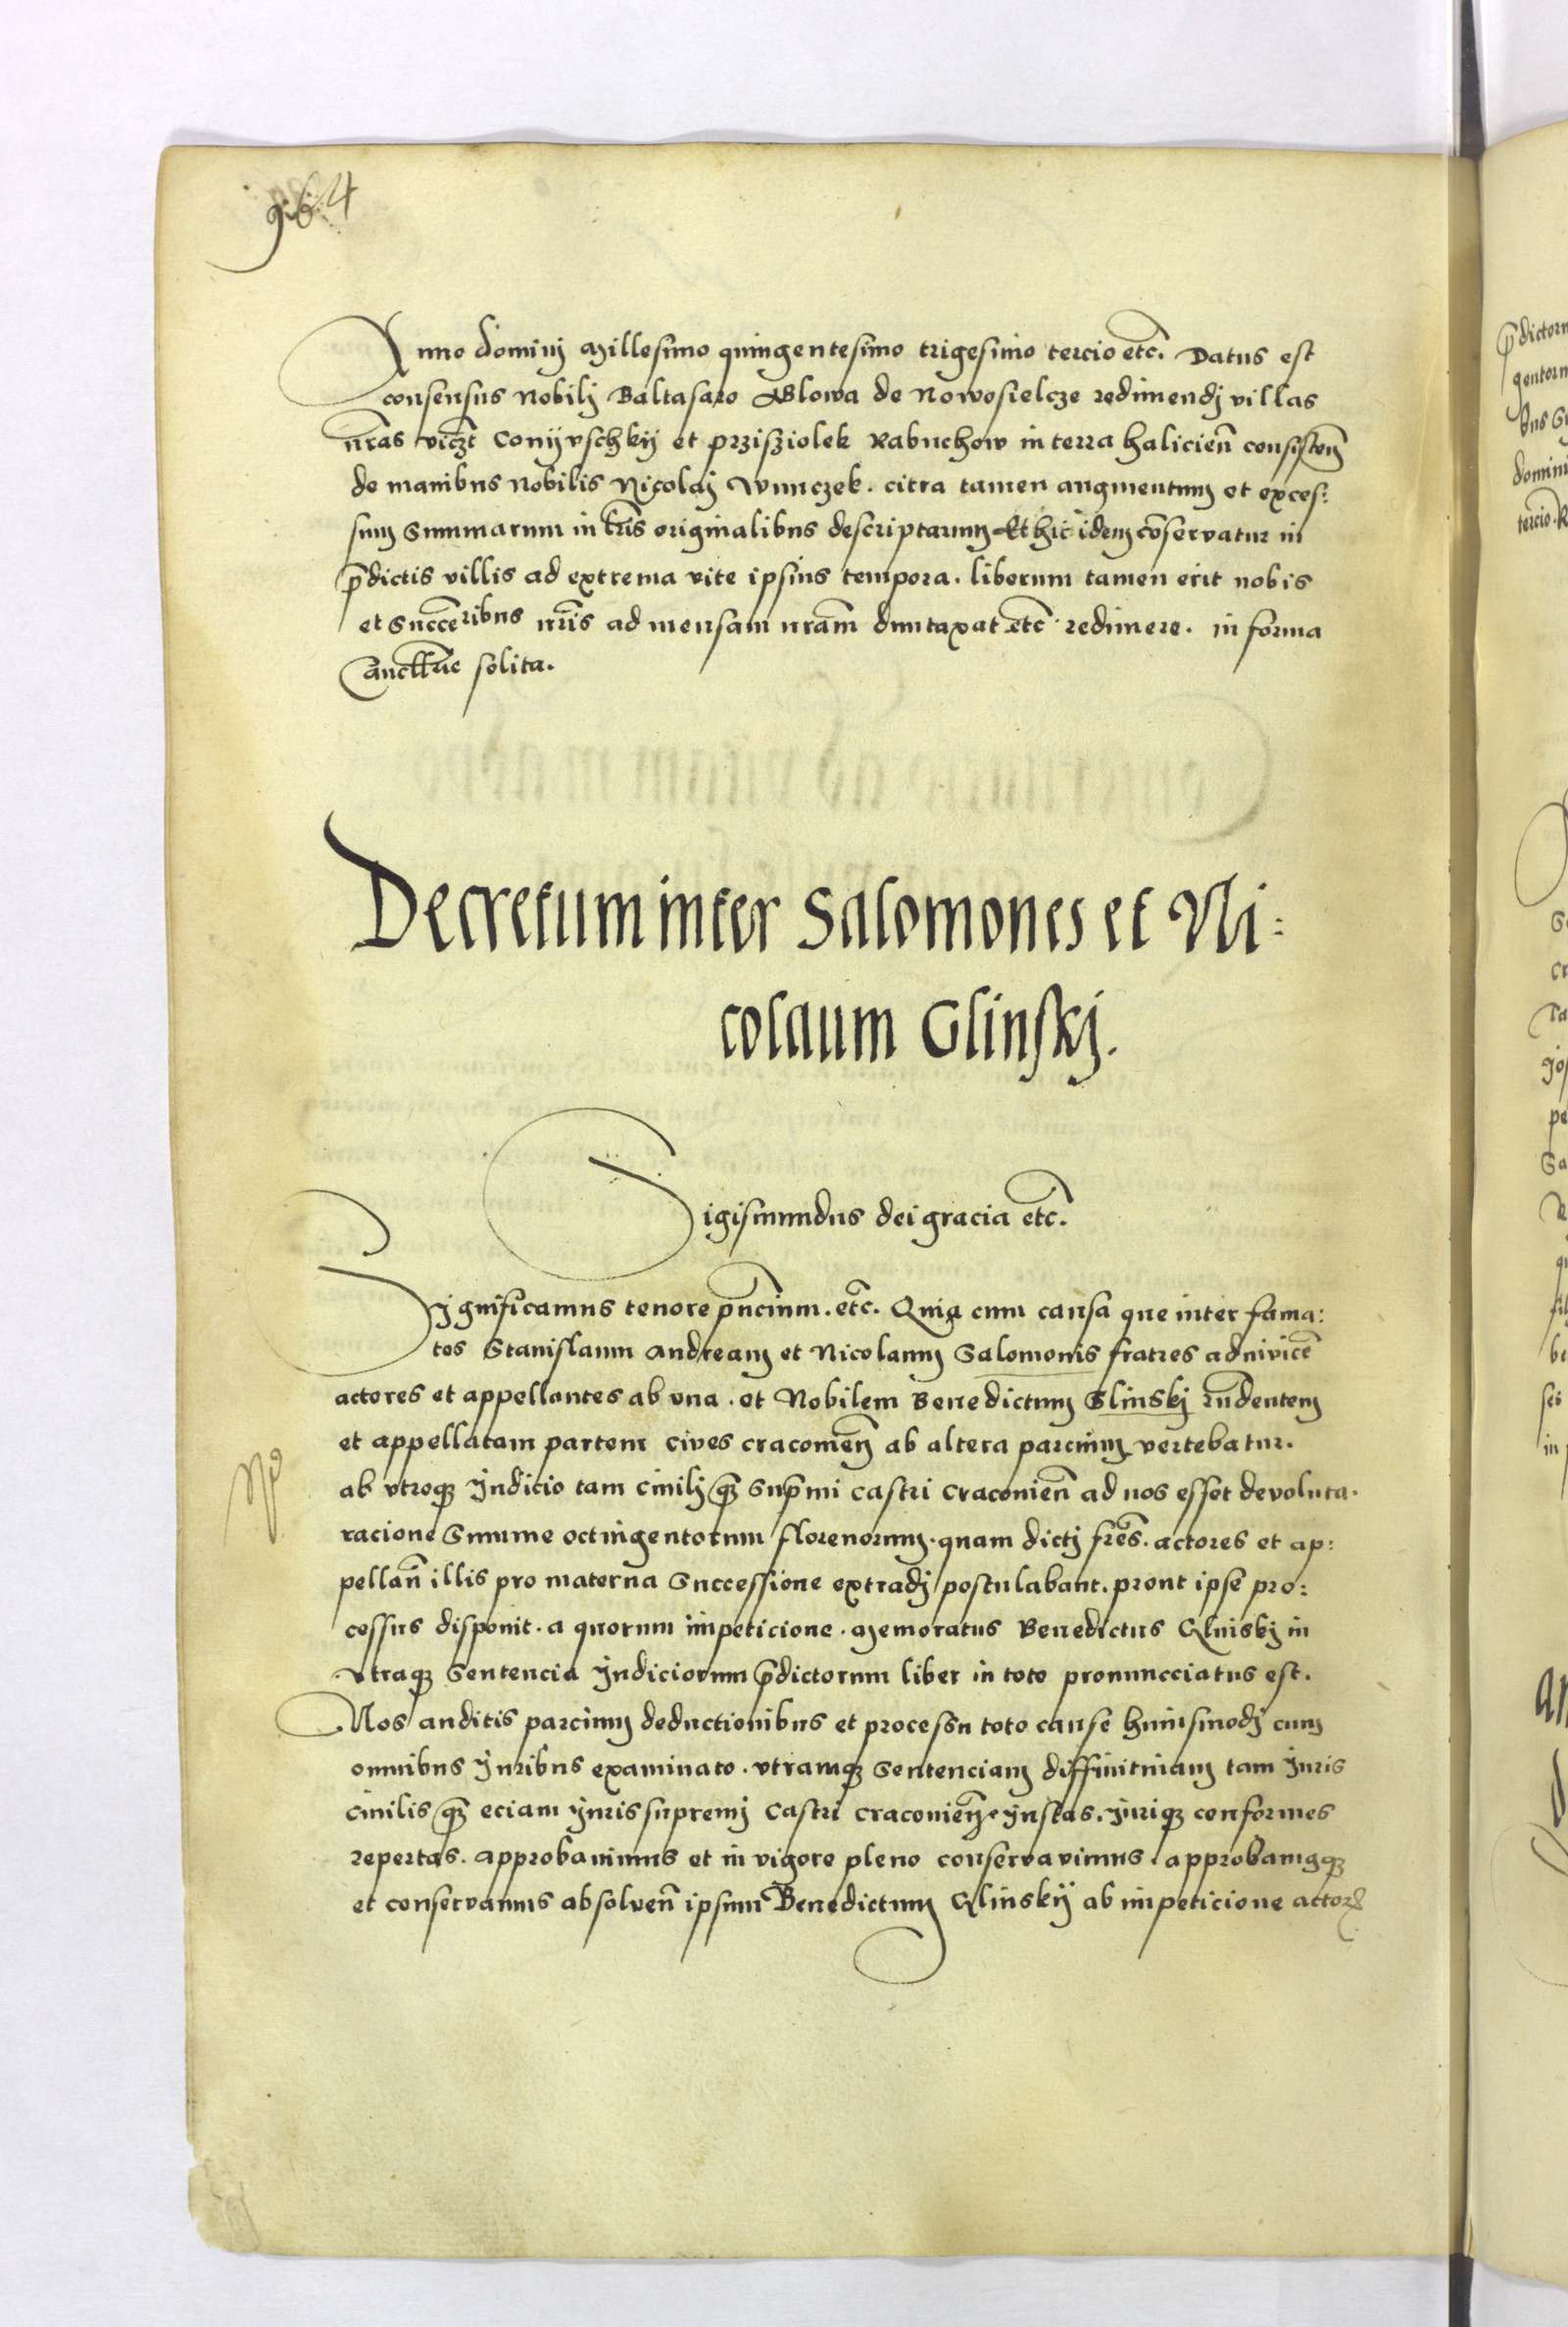 964
Anno dominj Millesimo quingentesimo trigesimo tercio etc̄. Datus est
consensus Nobilj Baltasaro Glowa de Nowosielcze redimendj villas
nr̄as vicz̄t Conijvschkij et przisziolek Rabuchow in terra halicien̄ consisten̄
de manibus Nobilis Nicolaj Wunczek. citra tamen augmentum et exces:
sum Summarum in lr̄is originalibus descriptarum Et hic idem cōservatur in
p̄dictis villis ad extrema vite ipsius tempora. liberum tamen erit nobis
et Succēribus nr̄is ad mensam nram̄ duntaxat etc̄. redimere. in forma
Cancell̄rie solita.
Decretum inter Salomones et Ni:
colaum Glinskj.
Sigismundus dei gracia etc̄.
Significamus tenore pn̄cium. etc̄. Quia cum causa que inter fama:
tos Stanislaum Andream et Nicolaum Salomonis fratres adinvicē
actores et appellantes ab vna. et Nobilem Benedictum Glinskj rn̄dentem
et appellatam partem cives cracovien̄ ab altera parcium vertebatur.
ab vtroq3 Judicio tam civilj q̄3 Sup̄mi castri Cracovien̄ ad nos esset devoluta.
racione Summe octingentorum florenorum. quam dictj fr̄es. actores et ap:
pellan̄ illis pro materna Successione extradj postulabant. prout ipse pro:
cessus disponit. a quorum impeticione. Memoratus Benedictus Glinskj in
vtraq3 Sentencia Judiciorum p̄dictorum liber in toto pronuncciatus est.
Nos auditis parcium deductionibus et processu toto cause huiusmodj cum
omnibus Juribus examinato. vtramq3 Sentenciam diffinitiuam tam Juris
civilis q̄3 eciam Juris supremj Castri Cracovien̄. Justas. Juriq3 conformes
repertas. approbauimus et in vigore pleno conservavimus. approbamusq3
et conservamus absolven̄ ipsum Benedictum Glinskij ab impeticione actor̄